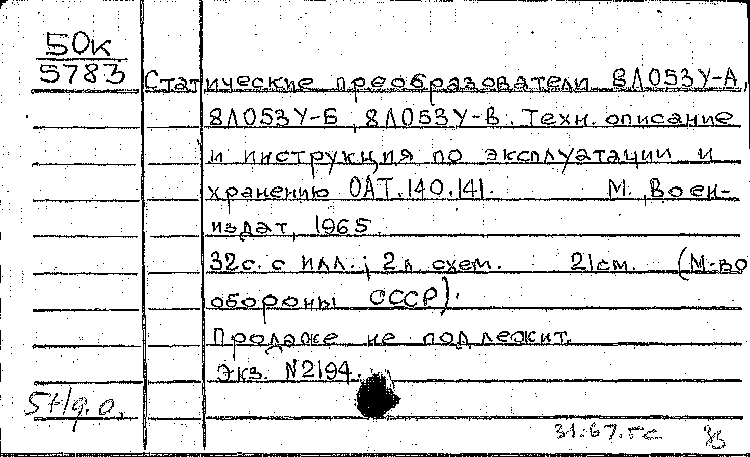 50к
5783
Статические преобразователи 8Л053У-А,
8Л053У-Б, 8Л053У-В. Техн. описание
и инструкция по эксплуатации и
хранению ОАТ.140.141. М., Воен-
издат, 1965.
32с. с илл.; 2л. схем. 21см. (М-во
обороны СССР).
Продаже не подлежит.
Экз. №2194.
31.67.5с